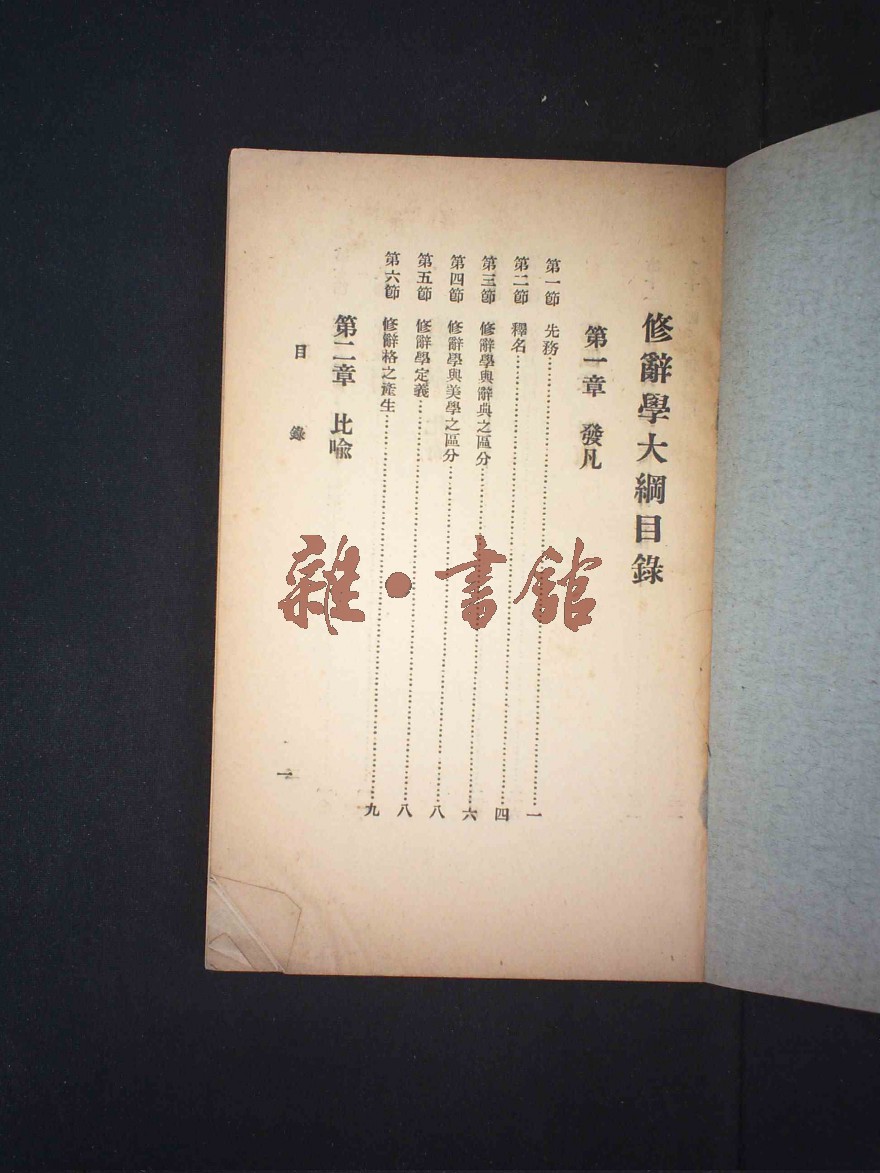 修辭學大綱目錄
第一章 發凡
第一節 先務……一
第二節 釋名……四
第三節 修辭學與辭典之區分……六
第四節 修辭學與美學之區分……八
第五節 修辭學定義……八
第六節 修辭格之產生……九
第二章 比喩
目錄
一
雜·書館